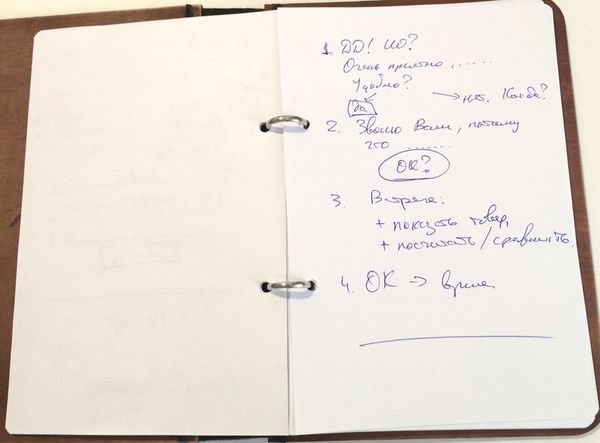 1. ДД! ИО?
Очень приятно, ......
Удобно?
да → нет. Когда?
2. Звоню Вам, потому
что ......
ОК?
3. Встреча:
+ показать товар,
+ посчитать / сравнить.
4. ОК → время